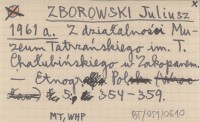 ZBOROWSKI Juliusz
1961 a. Z działalności Mu-
zeum Tatrzańskiego im. T.
Chałubińskiego w Zakopanem.
— Etnografia Polska
5, s. 354-359.
MT, WHP BJ/051/0610